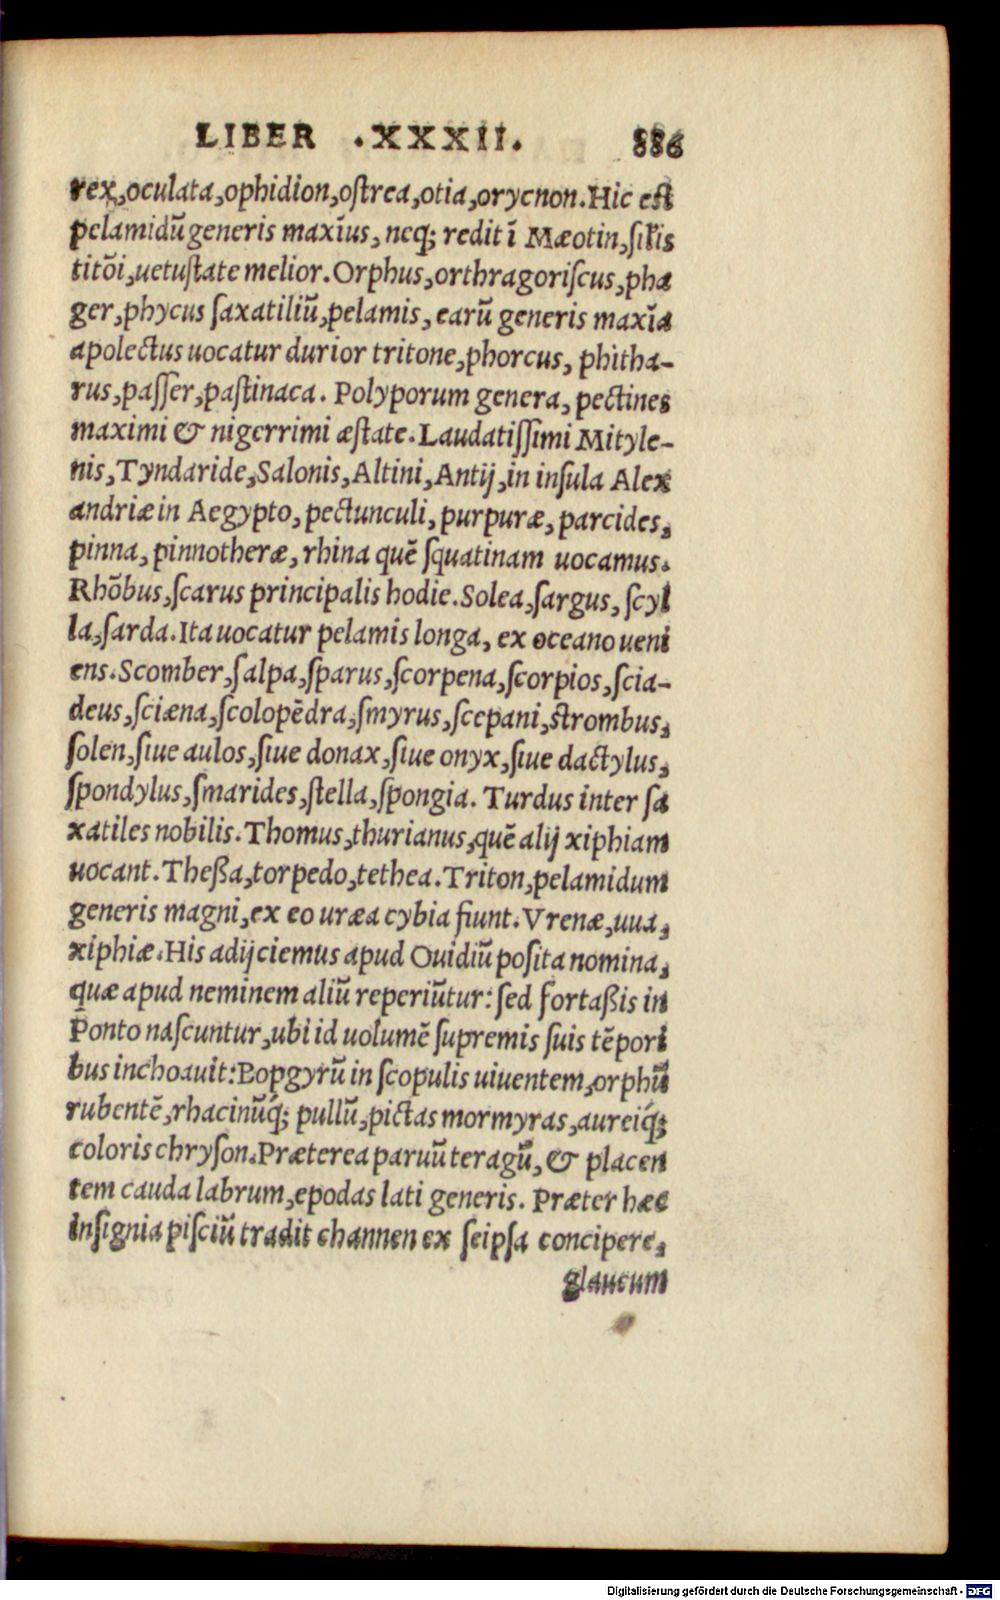 LIBER .XXXII. 886
rex,oculata,ophidion,oſtrea,otia,orycnon.Hic eſt
pelamidũ generis maxĩus, neq; redit ĩ Mæotin,ſilis
titõi,uetuſtate melior.Orphus,orthragoriſcus,pha
ger,phycus ſaxatiliũ,pelamis, earũ generis maxĩa
apolectus uocatur durior tritone,phorcus, phitha-
rus,paſſer,paſtinaca. Polyporum genera, pectines
maximi & nigerrimi æſtate.Laudatiſſimi Mityle-
nis,Tyndaride,Salonis,Altini,Antij,in inſula Alex
andriæ in Aegypto, pectunculi, purpuræ, parcides,
pinna, pinnotheræ, rhina quẽ ſquatinam uocamus.
Rhõbus,ſcarus principalis hodie.Solea,ſargus, ſcyl
la,ſarda.Ita uocatur pelamis longa, ex oceano ueni
ens.Scomber,ſalpa,ſparus,ſcorpena,ſcorpios,ſcia-
deus,ſciæna,ſcolopẽdra,ſmyrus,ſcepani,ſtrombus,
ſolen,ſiue aulos,ſiue donax,ſiue onyx,ſiue dactylus,
ſpondylus,ſmarides,ſtella,ſpongia. Turdus inter ſa
xatiles nobilis.Thomus,thurianus,quẽ alij xiphiam
uocant.Theßa,torpedo,tethea.Triton,pelamidum
generis magni,ex eo uræa cybia fiunt.Vrenæ,uua,
xiphiæ.His adijciemus apud Ouidiũ poſita nomina,
quæ apud neminem aliũ reperiũtur: ſed fortaßis in
Ponto naſcuntur,ubi id uolumẽ ſupremis ſuis tẽpori
bus inchoauit:Bopgyrũ in ſcopulis uiuentem,orphũ
rubentẽ,rhacinũq́; pullũ,pictas mormyras,aureiq́;
coloris chryſon.Præterea paruũ teragũ, & placen
tem cauda labrum,epodas lati generis. Præter hæc
inſignia piſciũ tradit channen ex ſeipſa concipere,
glaucum
Digitalisierung gefördert durch die Deutsche Forschungsgemeinschaft - DFG